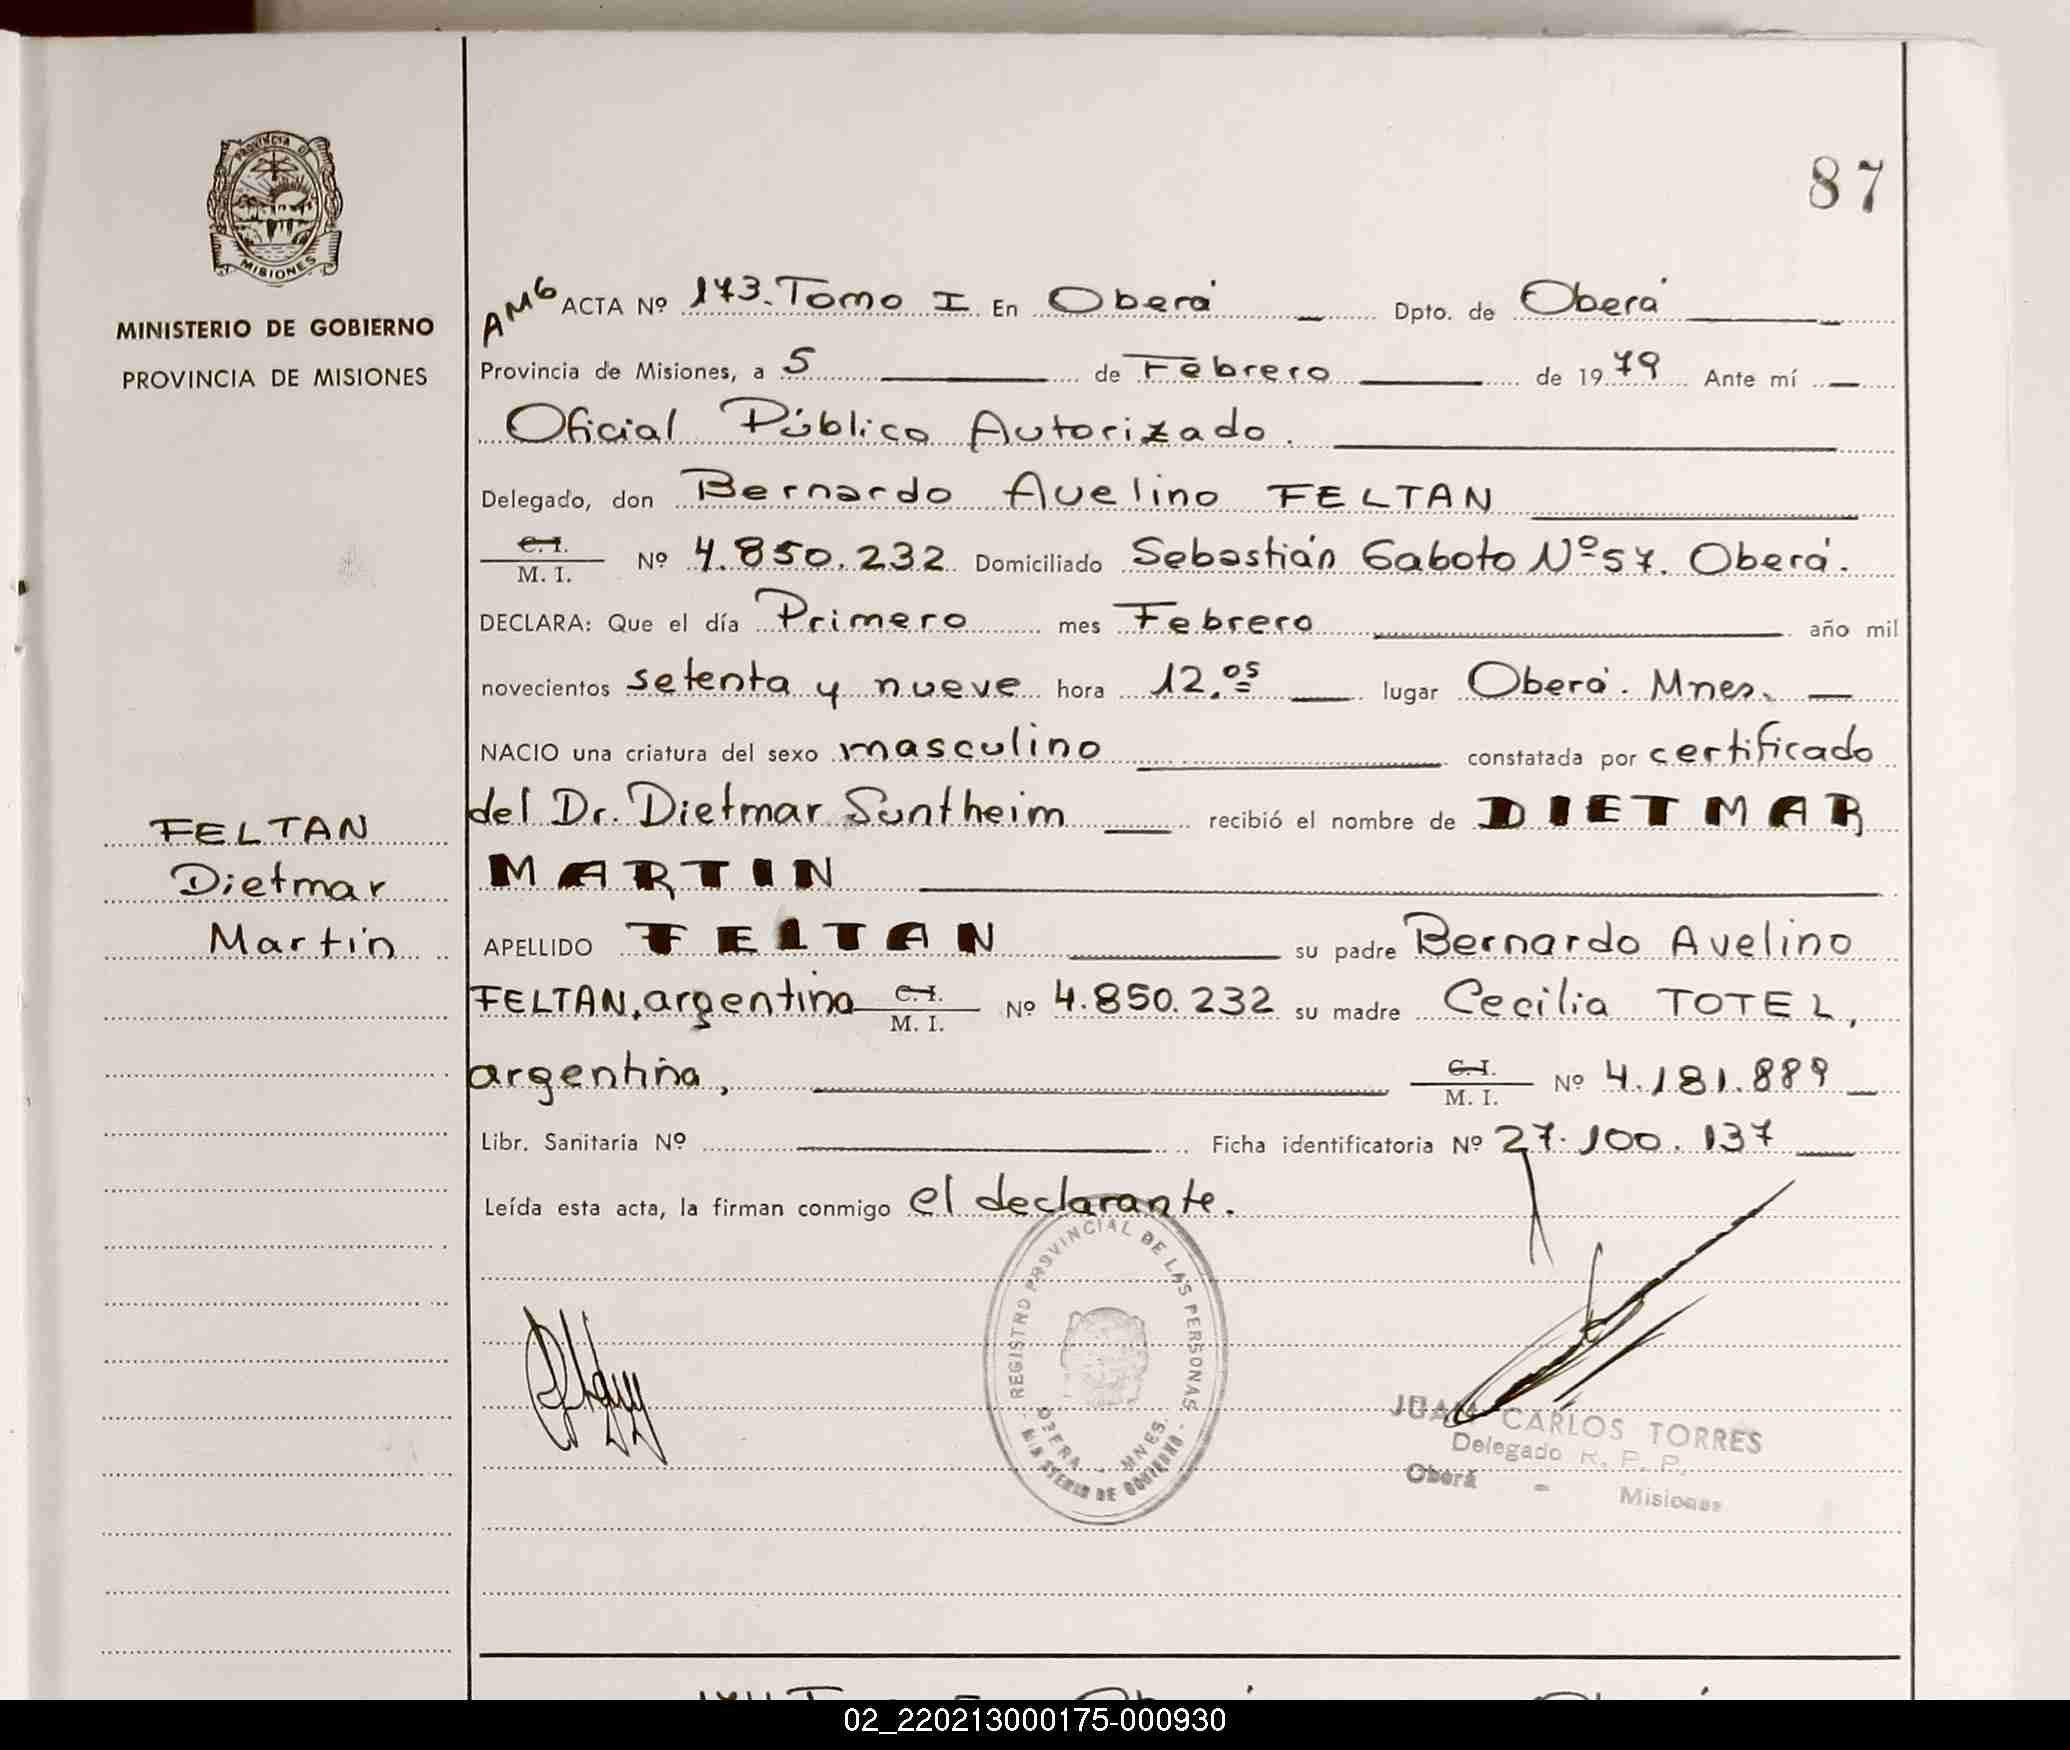 87
PROVINCIA DE
MISIONES
MINISTERIO DE GOBIERNO
PROVINCIA DE MISIONES
FELTAN
Dietmar
Martín
AMG ACTA Nº 173. Tomo I En Oberá Dpto. de Oberá
Provincia de Misiones, a 5 de Febrero de 1979 Ante mí
Oficial Público Autorizado.
Delegado, don Bernardo Avelino FELTAN
C. I.
M. I. Nº 4.850.232 Domiciliado Sebastián Gaboto Nº 57. Oberá.
DECLARA: Que el día Primero mes Febrero año mil
novecientos setenta y nueve hora 12.05 lugar Oberá. Mnes.
NACIO una criatura del sexo masculino constatada por certificado
del Dr. Dietmar Suntheim recibió el nombre de DIETMAR
MARTIN
APELLIDO FELTAN su padre Bernardo Avelino
FELTAN, argentino C. I. M. I. Nº 4.850.232 su madre Cecilia TOTEL,
argentina, C. I. M. I. Nº 4.181.889
Libr. Sanitaria Nº Ficha identificatoria Nº 27.100.137
Leída esta acta, la firman conmigo el declarante.
REGISTRO PROVINCIAL DE LAS PERSONAS
OBERA - MNES.
MINISTERIO DE GOBIERNO
JUAN CARLOS TORRES
Delegado R. P. P.
Oberá - Misiones
02_220213000175-000930